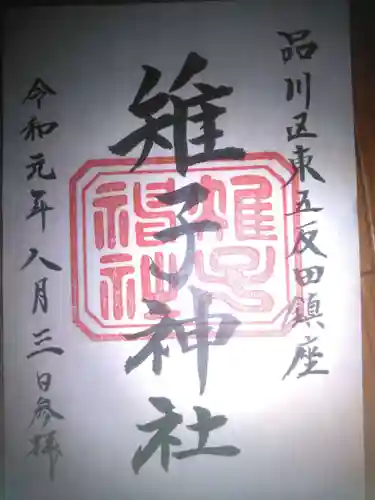 品川区東五反田鎮座
雉子神社
雉子神社
令和元年八月三日参拝